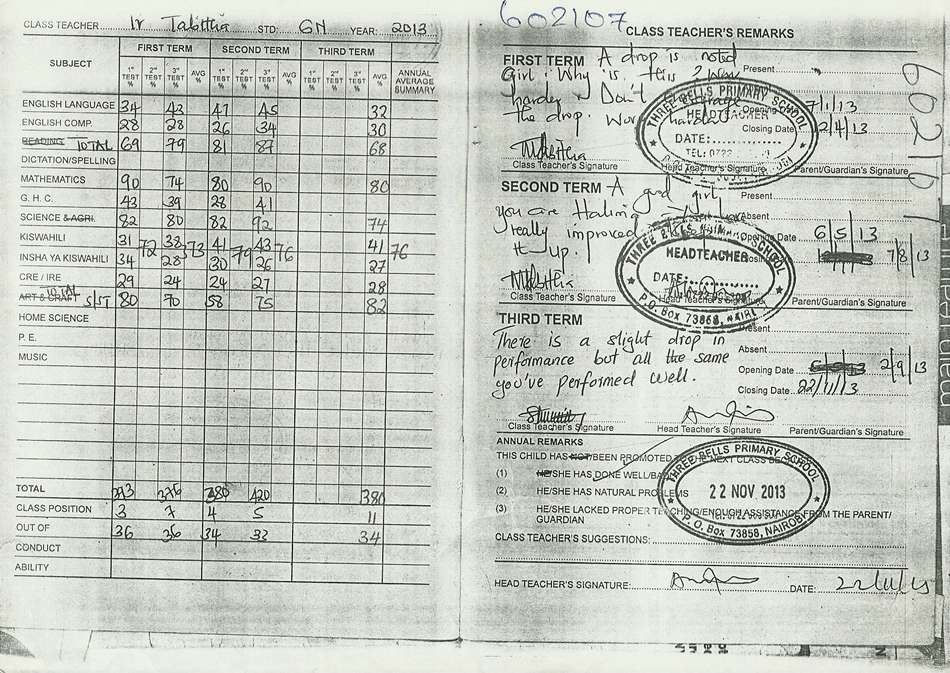 CLASS TEACHER Tr Tabitha STD: 6N YEAR: 2013
SUBJECT FIRST TERM SECOND TERM THIRD TERM ANNUAL AVERAGE SUMMARY
1ST TEST % 2ND TEST % 3RD TEST % AVG % 1ST TEST % 2ND TEST % 3RD TEST % AVG % 1ST TEST % 2ND TEST % 3RD TEST % AVG %
ENGLISH LANGUAGE 34 42 47 45 32
ENGLISH COMP. 28 28 26 34 30
READING TOTAL 69 79 81 87 68
DICTATION/SPELLING
MATHEMATICS 90 74 80 90 80
G. H. C. 43 39 28 41
SCIENCE & AGRI. 82 80 82 92 74
KISWAHILI 31 72 38 73 41 79 43 76 41 76
INSHA YA KISWAHILI 34 28 30 26 27
CRE / IRE 29 24 24 27 28
ART & CRAFT TOTAL S/ST 80 70 58 75 82
HOME SCIENCE
P. E.
MUSIC
TOTAL 393 376 380 420 380
CLASS POSITION 3 7 4 5 11
OUT OF 36 36 34 33 34
CONDUCT
ABILITY
602107
CLASS TEACHER'S REMARKS
FIRST TERM A drop is noted
Girl. Why is this? Work Present
harder & Don't Opening 7/1/13
the drop. Work harder Closing Date 2/4/13
Class Teacher's Signature Head Teacher's Signature Parent/Guardian's Signature
THREE BELLS PRIMARY SCHOOL
HEADTEACHER
DATE:
TEL: 0722
SECOND TERM A good girl Present
you are Absent
really improved Opening Date 6/5/13
it up. 7/8/13
Class Teacher's Signature Head Teacher's Signature Parent/Guardian's Signature
THREE BELLS PRIMARY SCHOOL
HEADTEACHER
DATE:
P.O. Box 73868, NAIROBI
THIRD TERM Present
There is a slight drop in
performance but all the same Absent
you've performed well. Opening Date 2/9/13
Closing Date 22/11/13
Class Teacher's Signature Head Teacher's Signature Parent/Guardian's Signature
ANNUAL REMARKS
THIS CHILD HAS NOT/BEEN PROMOTED TO NEXT CLASS
(1) HE/SHE HAS DONE WELL/BAD
(2) HE/SHE HAS NATURAL PROBLEMS
(3) HE/SHE LACKED PROPER TEACHING/ENOUGH ASSISTANCE FROM THE PARENT/
GUARDIAN
THREE BELLS PRIMARY SCHOOL
22 NOV 2013
P. O. Box 73858, NAIROBI
CLASS TEACHER'S SUGGESTIONS:
HEAD TEACHER'S SIGNATURE: DATE: 22/11/13